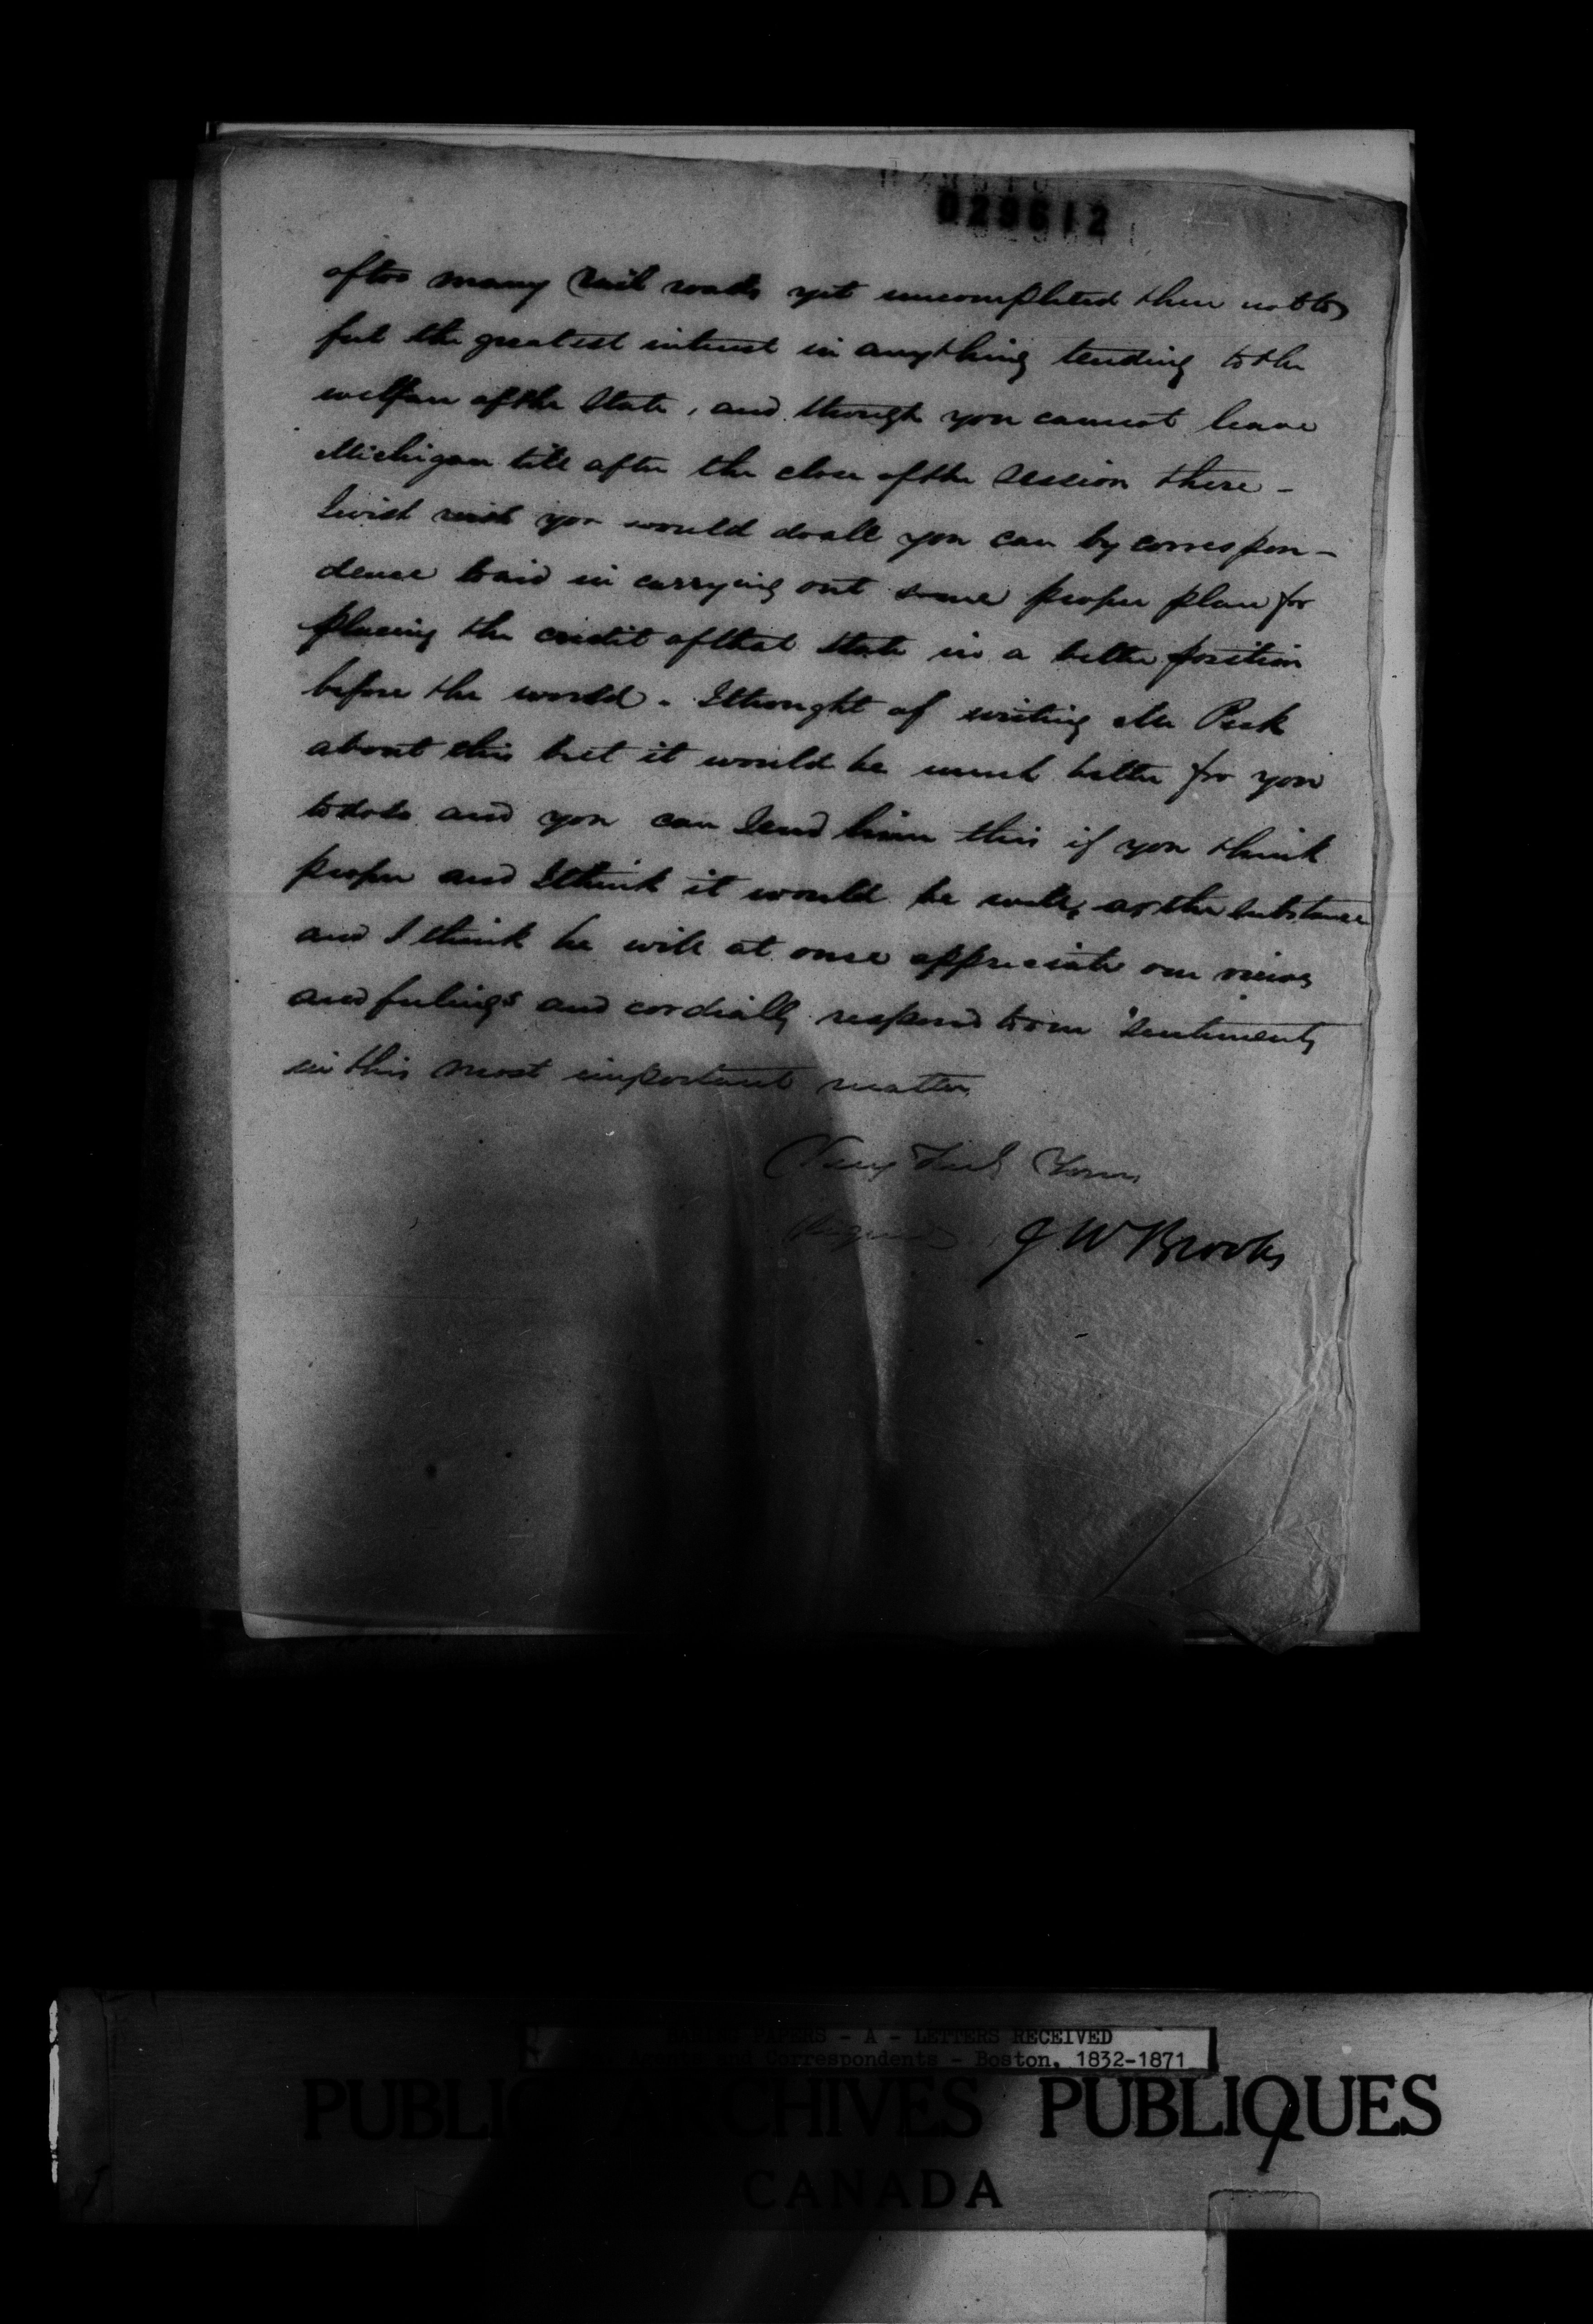 029612
of too many rail roads yet uncompleted there not to
feel the greatest interest in anything tending to the
welfare of the State, and though you cannot leave
Michigan till after the close of the Session there -
I wish wish you would do all you can by correspon-
dence to aid in carrying out some proper plan for
placing the credit of that State in a better position
before the world. I thought of writing Mr Peck
about this but it would be much better for you
to do so and you can send him this if you think
proper and I think it would be well, as the substance
and I think he will at once appreciate our views
and feelings and cordially respond to our sentiments
in this most important matter
Very Truly Yours
(Signed) J W Brooks
PAPERS - A - LETTERS RECEIVED
Agents and Correspondents - Boston, 1832-1871
PUBLIC ARCHIVES PUBLIQUES
CANADA